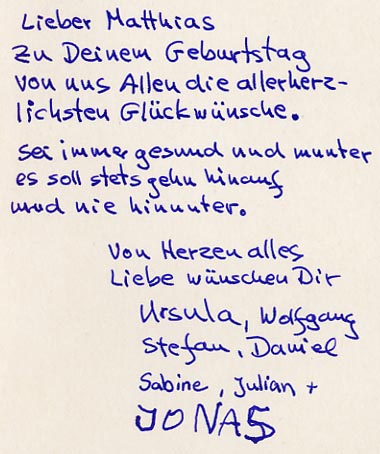 Lieber Matthias
zu Deinem Geburtstag
von uns Allen die allerherz-
lichsten Glückwünsche.
Sei immer gesund und munter
es soll stets gehn hinauf
und nie hinunter.
Von Herzen alles
Liebe wünschen Dir
Ursula, Wolfgang
Stefan, Daniel
Sabine, Julian +
JONAS